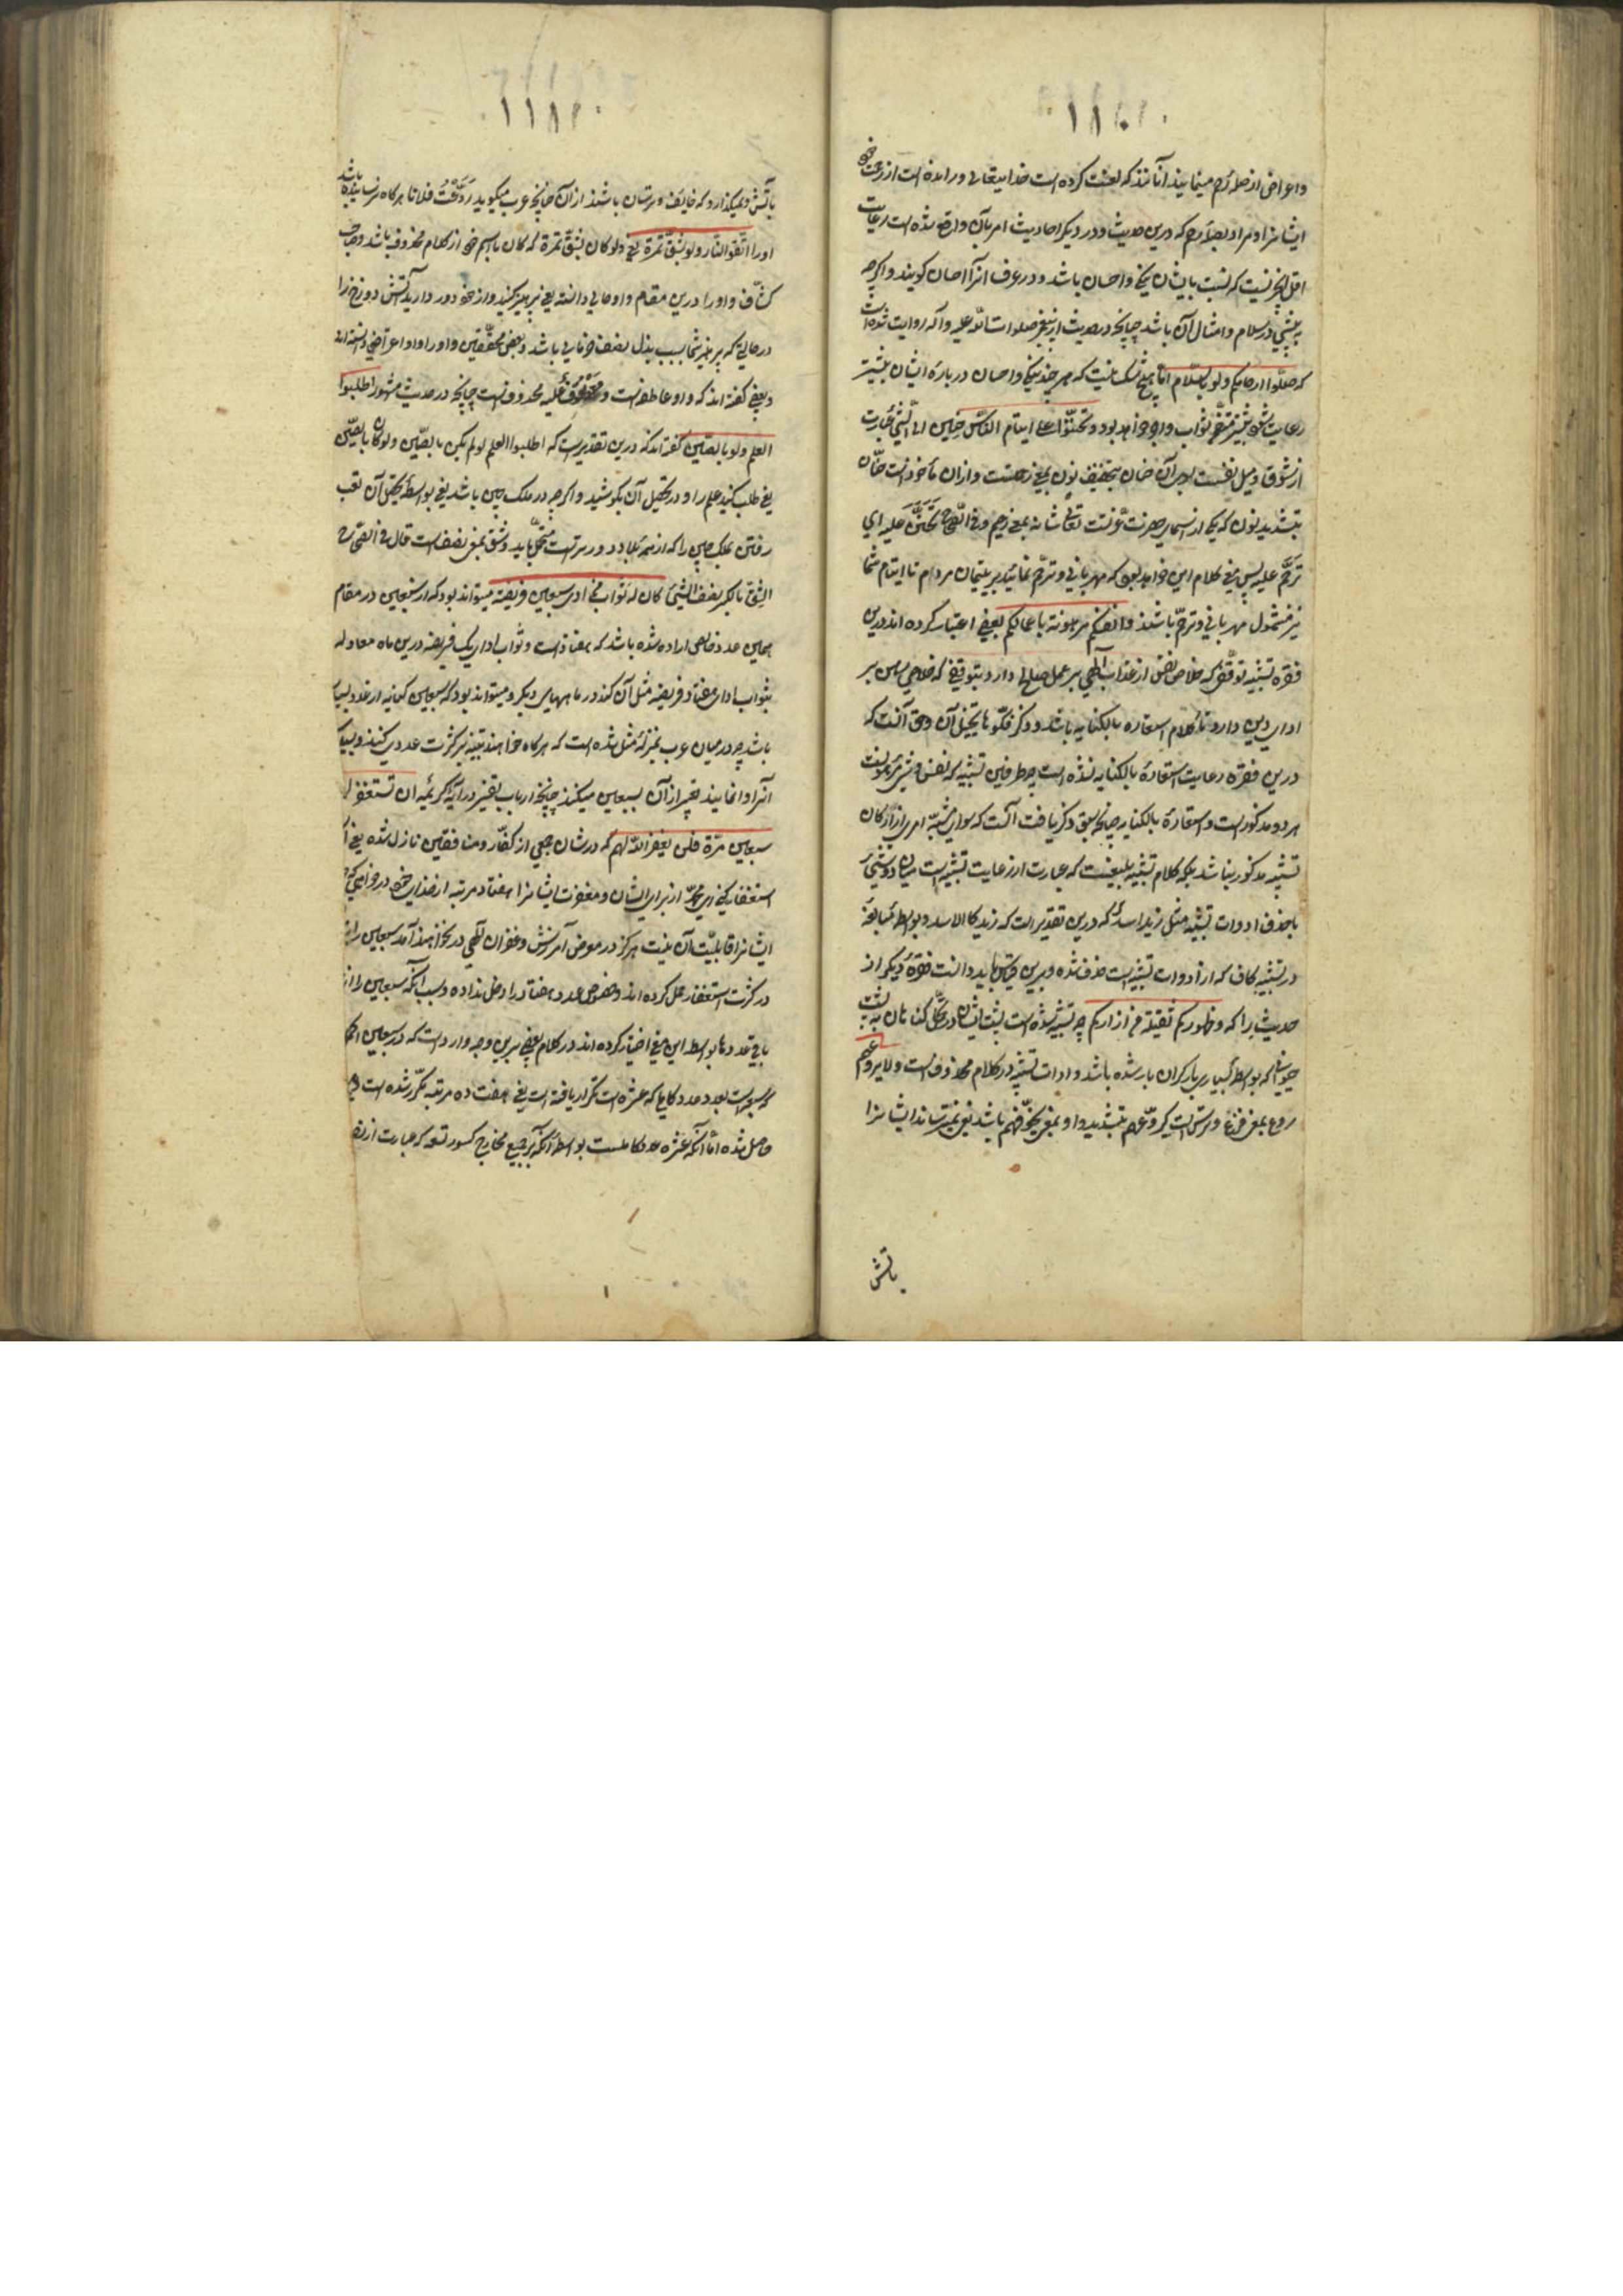 واعراض از صلهٔ رحم مینمایند آنانند که لعنت کرده است خدایتعالی و رانده است از رحمت خود
ایشانرا و مراد بصلهٔ رحم که درین حدیث و در دیگر احادیث امر بآن واقع شده است رعایت
اقل چیزیست که نسبت بایشان نیکی واحسان باشد و در عرف آنرا احسان گویند واگرچه
وامثال آن باشد چنانچه در حدیث از پیغمبر صلوات الله علیه وآله روایت شده است
که صلوا ارحامکم ولو بالسلام اما هیچ شک نیست که هر چند نیکی واحسان در بارهٔ ایشان بیشتر
رعایت شود بیشتر ثواب واجر خواهد بود وتحننوا علی ایتام الناس حنین الی الشئ عبارت
از شوق ومیل نفست بدان حنان بتخفیف نون بمعنی رحمتست وازان مأخوذست حنان
بتشدید نون که یکی از اسمای حضرت عزتست تعالی شانه بمعنی رحیم وفی الصحاح تحنن علیه ای
ترحم علیه پس معنی کلام این خواهد بود که مهربانی وترحم نمائید بر یتیمان مردم تا ایتام شما
نیز مشمول مهربانی وترحم باشند وانفسکم مرهونة باعمالکم بعضی اعتبار کرده اند درین
فقره تشبیه توقفی که خلاص نفس از عذاب الهی بر عمل صالح دارد بتوقفی که خلاصی رهن بر
ادای دین دارد تا کلام استعاره بالکنایه باشد وذکر فکوها تخییل آن وحق آنست که
درین فقره رعایت استعارهٔ بالکنایه نشده است چه طرفین تشبیه که نفس وشئ مرهونست
هر دو مذکور است واستعارهٔ بالکنایه چنانچه سبق ذکر یافت آنست که سوای مشبه امری از ارکان
تشبیه مذکور نباشد بلکه کلام تشبیه بلیغست که عبارت از رعایت تشبیه است میان دو شئ
با حذف ادوات تشبیه مثل زید اسد که درین تقدیر است که زید کالاسد وبواسطهٔ مبالغه
در تشبیه کاف که از ادوات تشبیه است حذف شده وبرین قیاس باید دانست فقرهٔ دیگر از
حدیث را که وظهورکم ثقیلة من اوزارکم چه تشبیه شده است پشت ایشان در تحمل گناهان به پشت
حیوانی که بواسطهٔ بسیاری بار گران بار شده باشد وادات تشبیه در کلام محذوفست ولا یروعهم
روع بمعنی فزع وترس است یروعهم بتشدید واو بمعنی یخوفهم باشد یعنی نمیترساند ایشانرا
باتش
باتش ونمیگذارد که خایف وترسان باشند از آن چنانچه عرب میگوید روعت فلانا هرگاه ترسانیده باشد
اورا اتقوا النار ولو بشق تمرة یعنی ولو کان بشق تمرة که کان با اسم خود از کلام محذوف باشد وصاحب
کشاف واو را درین مقام واو حالی دانسته یعنی پرهیز کنید واز خود دور دارید آتش دوزخ را
در حالتی که پرهیز شما بسبب بذل نصف خرمایی باشد وبعضی محققین واو را واو اعتراضی دانسته اند
وبعضی گفته اند که واو عاطفه است ومعطوف علیه محذوفست چنانچه در حدیث مشهور اطلبوا
العلم ولو بالصین گفته اند که درین تقدیرست که اطلبوا العلم لو لم یکن بالصین ولو کان بالصین
یعنی طلب کنید علم را ودر تحصیل آن بکوشید واگرچه در ملک چین باشد یعنی بواسطهٔ تحصیل آن تعب
رفتن بملک چین را که از همه بلاد دورترست متحمل باید شد وشق بمعنی نصف است قال فی الصحاح
الشق بالکسر نصف الشئ کان له ثواب من ادی سبعین فریضة میتواند بود که از سبعین در مقام
همین عدد خاص اراده شده باشد که هفتادست وثواب ادای یک فریضه درین ماه معادل
بثواب ادای هفتاد فریضه مثل آن کند در ماههای دیگر ومیتواند بود که سبعین کنایه از عدد بسیار
باشد چه در میان عرب بمنزلهٔ مثل شده است که هرگاه خواهند تنبیه بر کثرت عددی کنند وبسیاری
آنرا وانمایند تعبیر از آن بسبعین میکنند چنانچه ارباب تفسیر در آیهٔ کریمهٔ ان تستغفر ل
سبعین مرة فلن یغفر الله لهم که در شان جمعی از کفار ومنافقین نازل شده یعنی ا
استغفار کنی ای محمد از برای ایشان ومغفرت ایشانرا هفتاد مرتبه از خدای خود درخواهی کنی
ایشانرا قابلیت آن نیست هرگز در معرض آمرزش وغفران الهی در نخواهند آمد سبعین را
در کثرت استغفار حمل کرده اند وخصوص عدد هفتاد را دخل نداده وسبب آنکه سبعین را از
باقی عددها بواسطهٔ این معنی اختیار کرده اند در کلام بعضی برین وجه وارد است که در سبعین
که سبعه است بعدد عدد کاملی که عشره است تکرار یافته است یعنی هفت ده مرتبه مکرر شده است
حاصل شده اما آنکه عشره عدد کاملست بواسطهٔ آنکه بر جمیع مخارج کسور تسعه که عبارت از